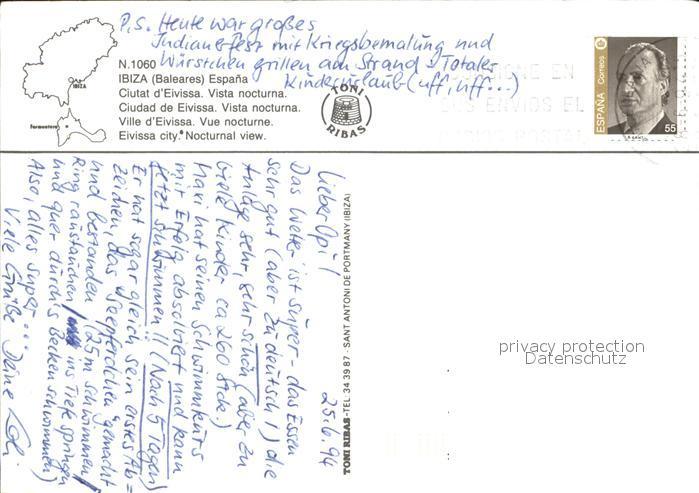 P.S. Heute war großes
Indianerfest mit Kriegsbemalung und
Würstchen grillen am Strand! Totaler
Kinderurlaub (uff, uff...)
N.1060
IBIZA (Baleares) España
Ciutat d'Eivissa. Vista nocturna.
Ciudad de Eivissa. Vista nocturna.
Ville d'Eivissa. Vue nocturne.
Eivissa city. Nocturnal view.
IBIZA
Formentera
TONI
RIBAS
ESPAÑA
Correos
55
SUS ENVIOS EL
25.6.94
Lieber Opi!
Das Wetter ist super - das Essen
sehr gut (aber zu deutsch!) die
Anlage sehr, sehr schön (aber zu
viele Kinder ca 260 Stck.)
Maxi hat seinen Schwimmkurs
mit Erfolg absolviert und kann
jetzt schwimmen!! (Nach 5 Tagen)
Er hat sogar gleich sein erstes Ab=
zeichen, das "Seepferdchen" gemacht
und bestanden (25m schwimmen/
Ring raustauchen/ ins Tiefe springen
und quer durchs Becken schwimmen)
Also, alles super...
Viele Grüße Deine
TONI RIBAS - TEL. 34 39 87 - SANT ANTONI DE PORTMANY (IBIZA)
privacy protection
Datenschutz